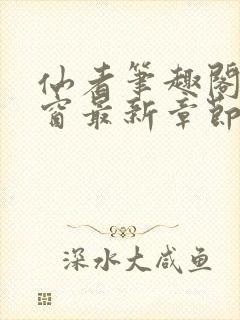 仙者筆趣閣
窗最新章節
深水大咸鱼